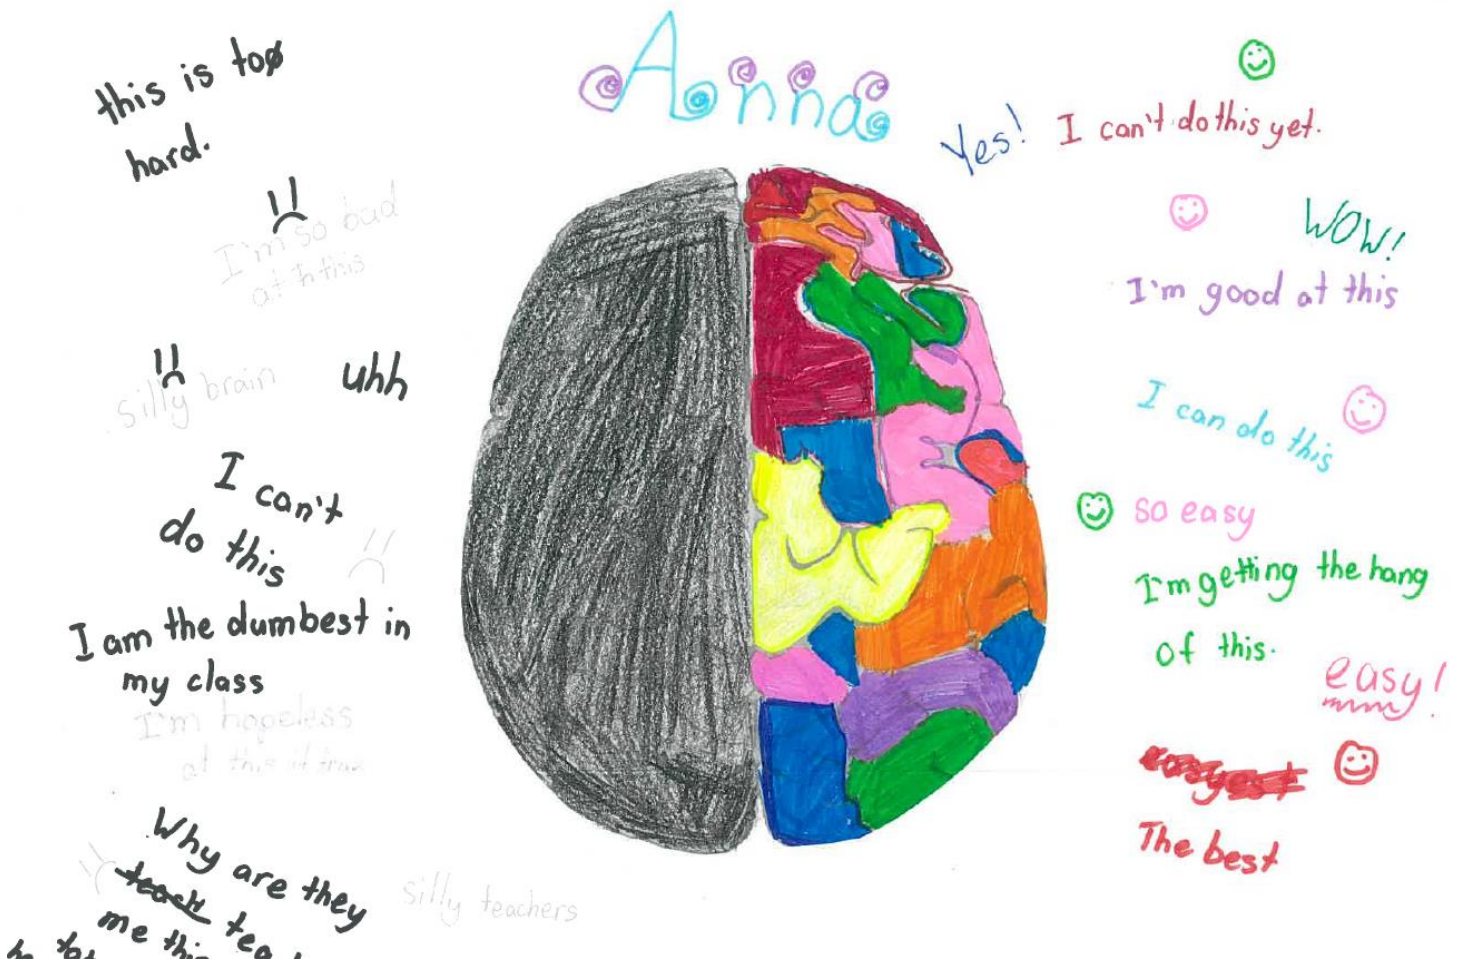 Anna
this is too
hard.
I'm so bad
at this
silly brain
uhh
I can't
do this
I am the dumbest in
my class
I'm hopeless
at this
Why are they
teach
me
silly teachers
Yes!
I can't do this yet.
WOW!
I'm good at this
I can do this
so easy
I'm getting the hang
of this.
easy!
easyest
The best